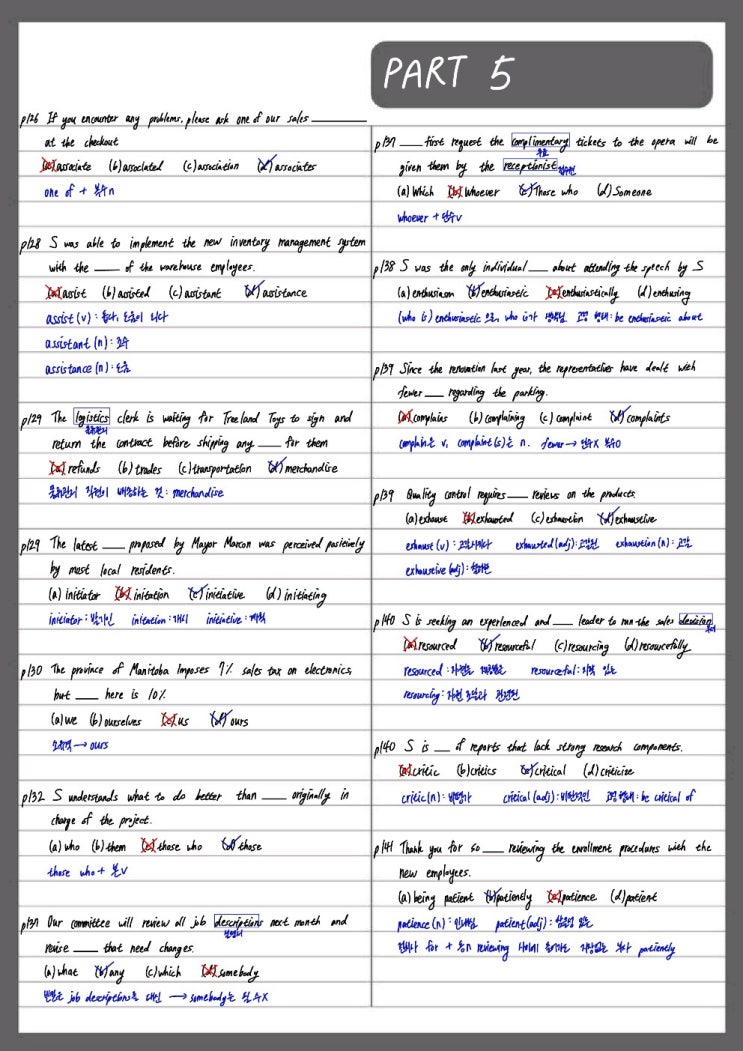 PART 5
p126 If you encounter any problems, please ask one of our sales ______
at the checkout
(a) associate (b) associated (c) association (d) associates
one of + 복수n
p128 S was able to implement the new inventory management system
with the ____ of the warehouse employees.
(a) assist (b) assisted (c) assistant (d) assistance
assist (v) : 돕다, 도움이 되다
assistant (n) : 조수
assistance (n) : 도움
p129 The logistics clerk is waiting for Treeland Toys to sign and
물류관리
return the contract before shipping any ____ for them
(a) refunds (b) trades (c) transportation (d) merchandise
물류관리 직원이 배송하는 것 : merchandise
p129 The latest ____ proposed by Mayor Marcon was perceived positively
by most local residents.
(a) initiator (b) initation (c) initiative (d) initiating
initiator : 발기인 initation : 개시 initiative : 계획
p130 The province of Manitoba imposes 7% sales tax on electronics,
but ____ here is 10%
(a) we (b) ourselves (c) us (d) ours
→ ours
p132 S understands what to do better than ____ originally in
charge of the project.
(a) who (b) them (c) those who (d) those
those who + 본v
p137 Our committee will review all job descriptions next month and
revise ____ that need changes.
(a) what (b) any (c) which (d) somebody
빈칸은 job descriptions을 대신 → somebody는 될 수 X
p137 ____ first request the complimentary tickets to the opera will be
무료
given them by the receptionist
접수원
(a) Which (b) Whoever (c) Those who (d) Someone
whoever + 단수v
p138 S was the only individual ____ about attending the speech by S
(a) enthusiasm (b) enthusiastic (c) enthusiastically (d) enthusing
(who is) enthusiastic 으로, who is가 생략됨 고정 형태 : be enthusiastic about
p139 Since the renovation last year, the representatives have dealt with
fewer ____ regarding the parking.
(a) complains (b) complaining (c) complaint (d) complaints
complain은 v, complaint(s)는 n. fewer → 단수X 복수O
p139 Quality control requires ____ reviews on the products.
(a) exhaust (b) exhausted (c) exhaustion (d) exhaustive
exhaust (v) : 고갈시키다 exhausted (adj) : 고갈된 exhaustion (n) : 고갈
exhaustive (adj) : 철저한
p140 S is seeking an experienced and ____ leader to run the sales devision
부서
(a) resourced (b) resourceful (c) resourcing (d) resourcefully
resourced : 자원을 제공받은 resourceful : 지략 있는
resourcing : 자원 조달과 관련된
p140 S is ____ of reports that lack strong research components.
(a) critic (b) critics (c) critical (d) criticize
critic (n) : 비평가 critical (adj) : 비판적인 고정 형태 : be critical of
p141 Thank you for so ____ reviewing the enrollment procedures with the
new employees.
(a) being patient (b) patiently (c) patience (d) patient
patience (n) : 인내심 patient (adj) : 참을성 있는
전치사 for + 동n reviewing 사이에 들어가도 지장없는 부사 patiently